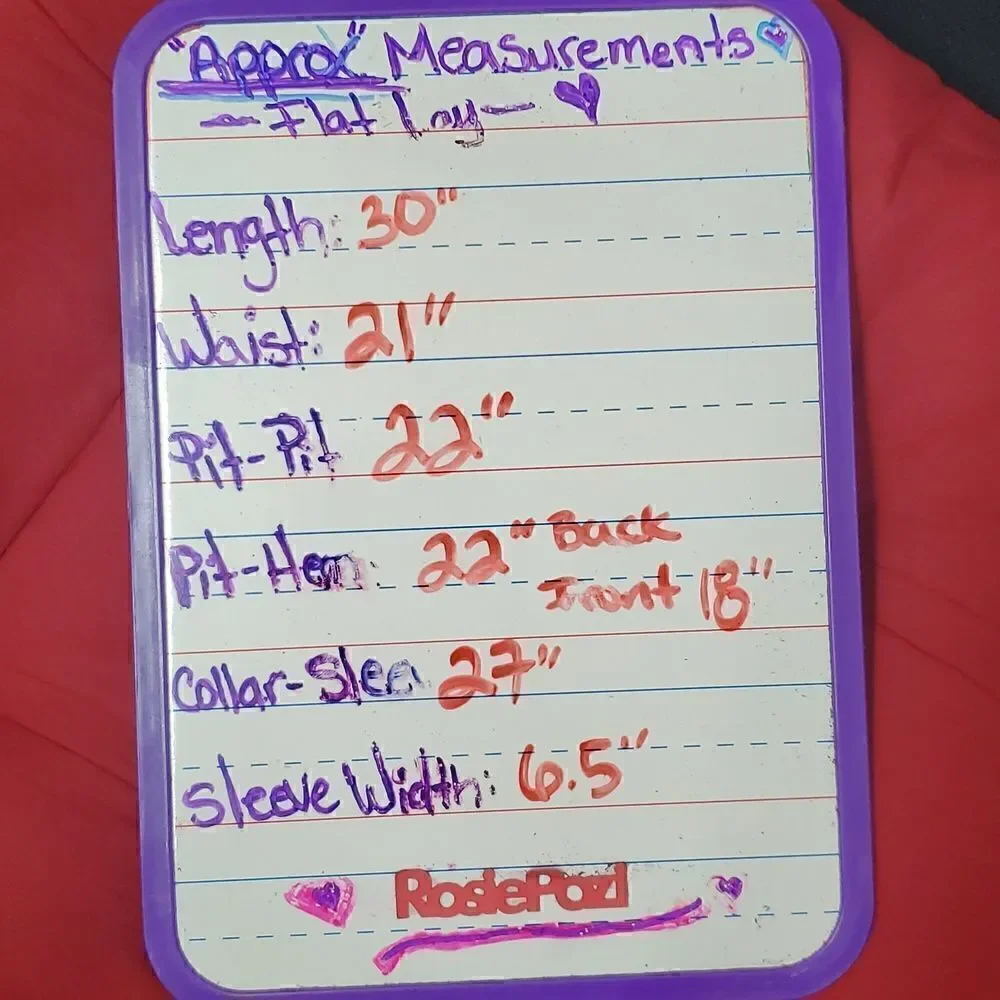 "Approx" Measurements
- Flat Lay -
Length: 30"
Waist: 21"
Pit-Pit 22"
Pit-Hem: 22" Back
Front 18"
Collar-Slee 27"
Sleeve Width: 6.5"
RosiePozl